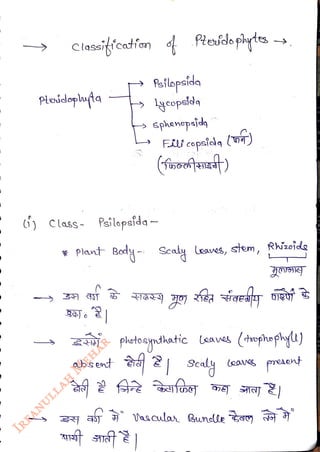 → Classification of Pteridophytes →.
Pteridophyta
→ Psilopsida
→ Lycopsida
→ Sphenopsida
→ Filicopsida (फर्न)
(i) Class- Psilopsida -
* Plant Body - Scaly leaves, stem, Rhizoids
→ इस वर्ग के सदस्य मूल रहित संवहनीय पादपों के
है।
→ इसमें photosynthatic leaves (trophophyll)
absent होती है। Scaly leaves present
होती है जिन्हे कहा जाता है।
→ इस वर्ग में Vascular Bundle केवल तने में
पायी जाती है।
IRFANULLAH